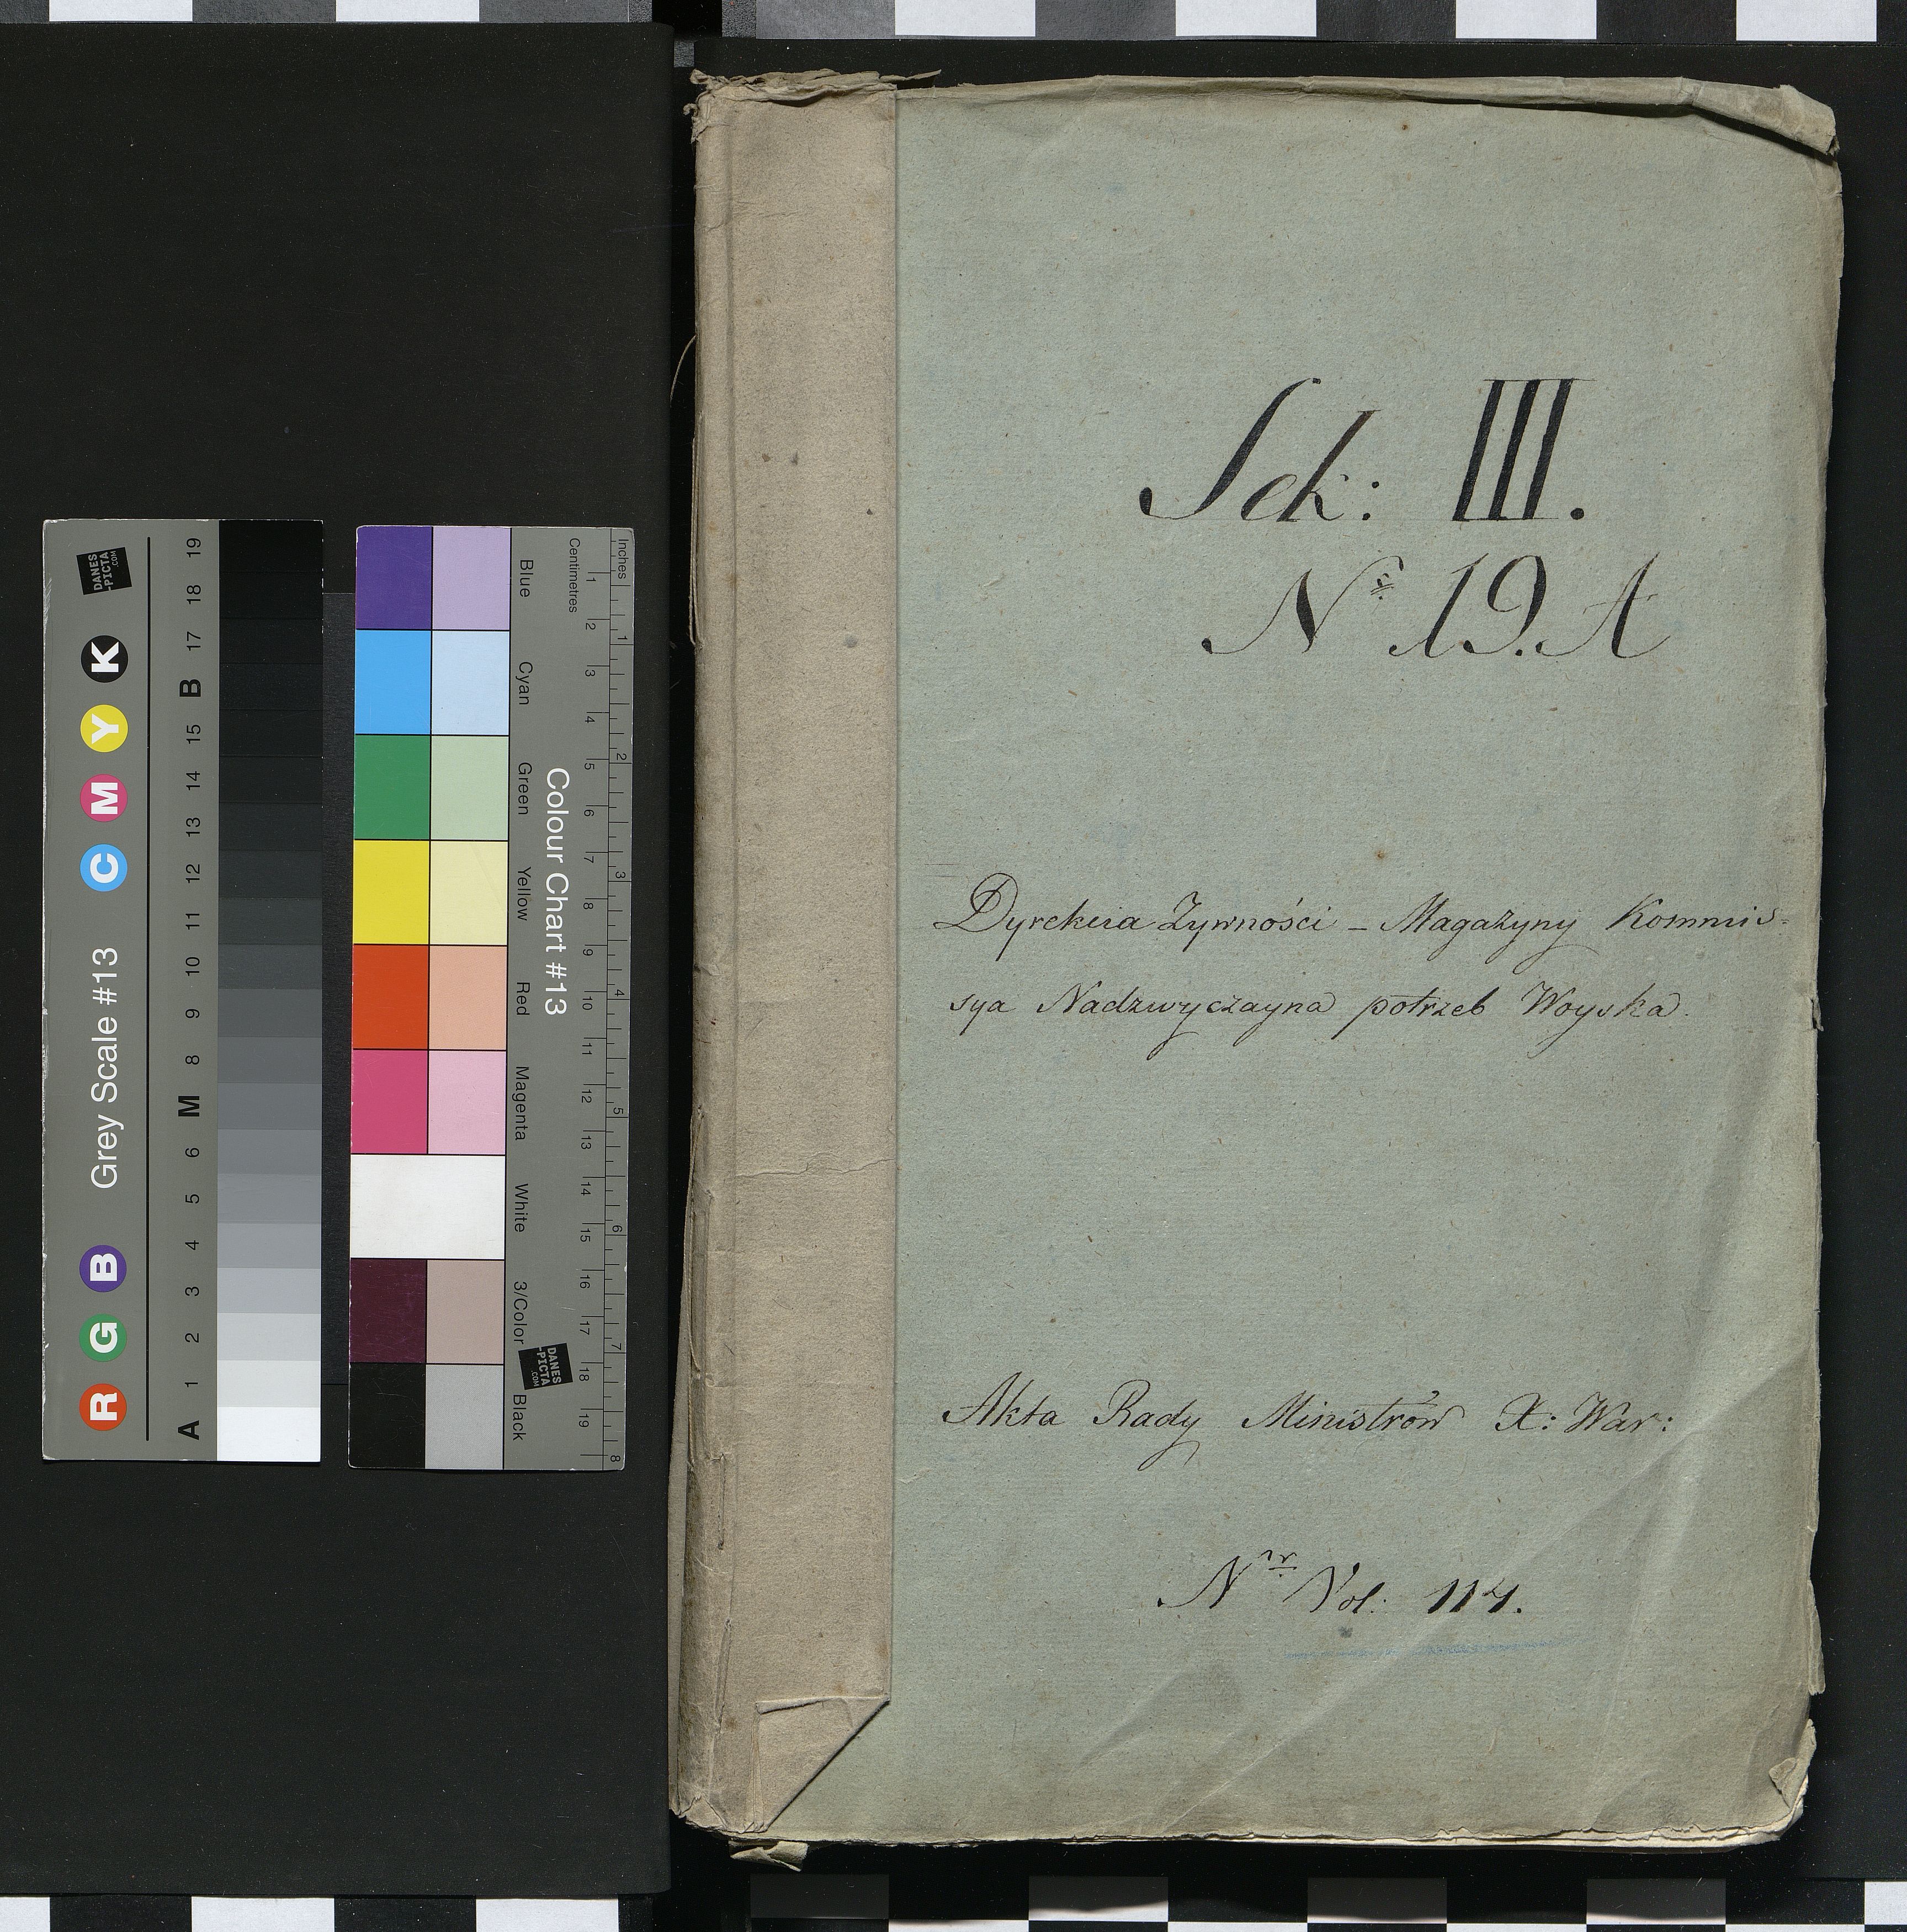 Sek: III.
Nr 19. A
Dyrekcia Żywności – Magazyny Kommis-
sya Nadzwyczayna potrzeb Woyska.
Akta Rady Ministrów X: War:
Nr Vol: 114.
Grey Scale #13
R G B C M Y K
A 1 2 3 4 5 6 M 8 9 10 11 12 13 14 15 B 17 18 19
DANES
-PICTA
.COM
Colour Chart #13
Blue Cyan Green Yellow Red Magenta White 3/Color Black
Centimetres 1 2 3 4 5 6 7 8 9 10 11 12 13 14 15 16 17 18 19
Inches 1 2 3 4 5 6 7 8
DANES
-PICTA
.COM